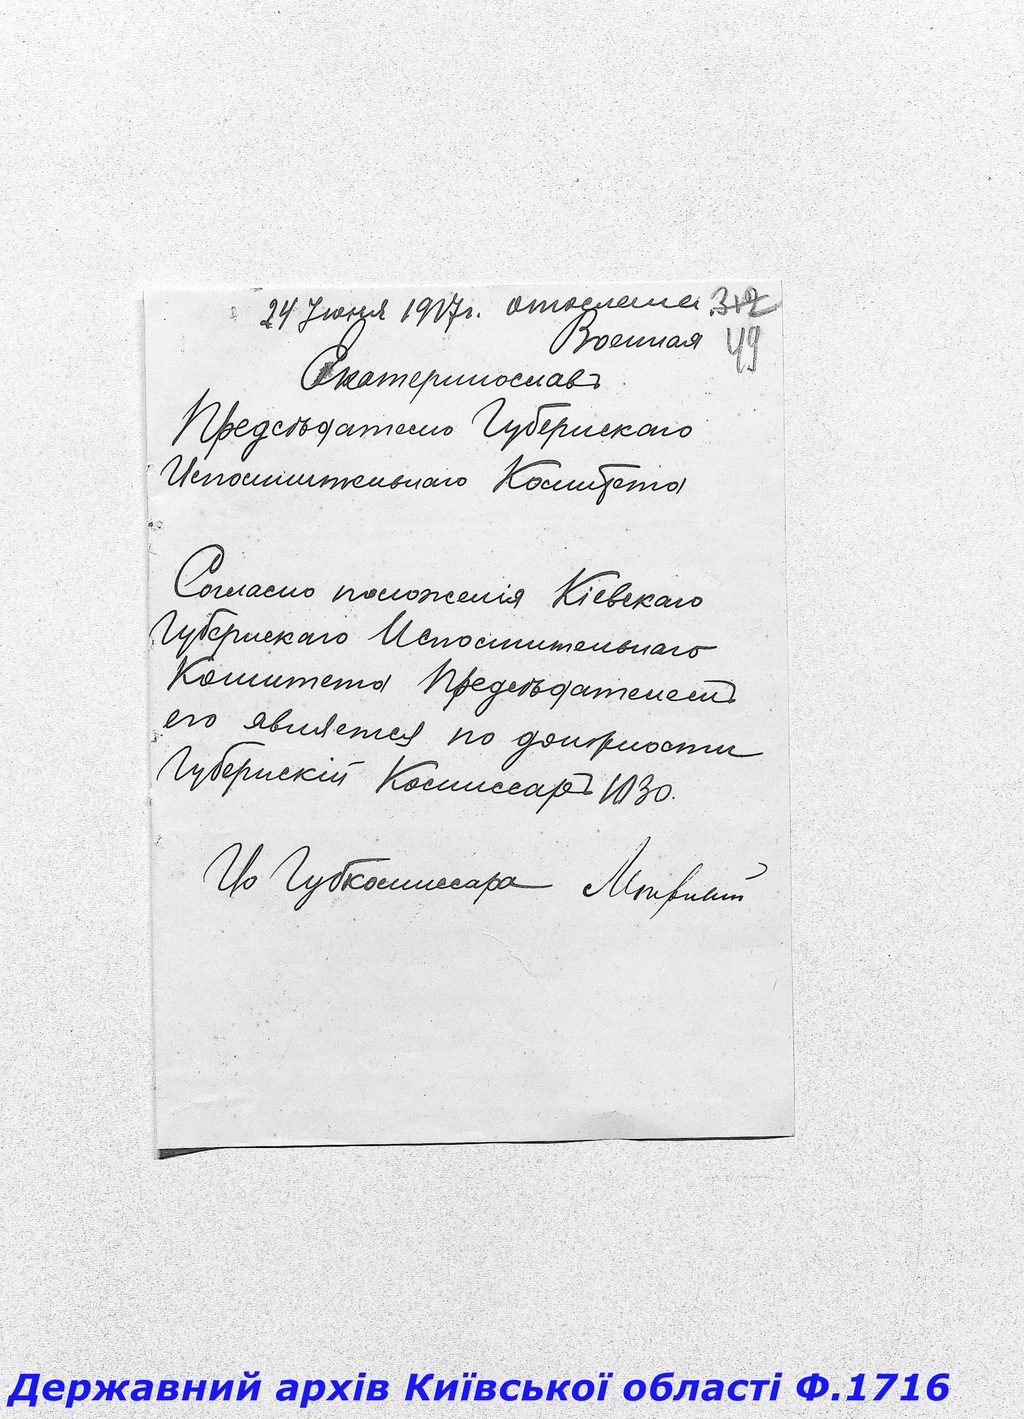 24 Июня 1917г. отослана
Военная 49
Екатеринославъ
Председателю Губернскаго
Исполнительнаго Комитета
Согласно положенія Кіевскаго
Губернскаго Исполнительнаго
Комитета Председателемъ
его является по должности
Губернскій Комиссаръ 1030.
Ио Губкомиссара
Державний архів Київської області Ф.1716